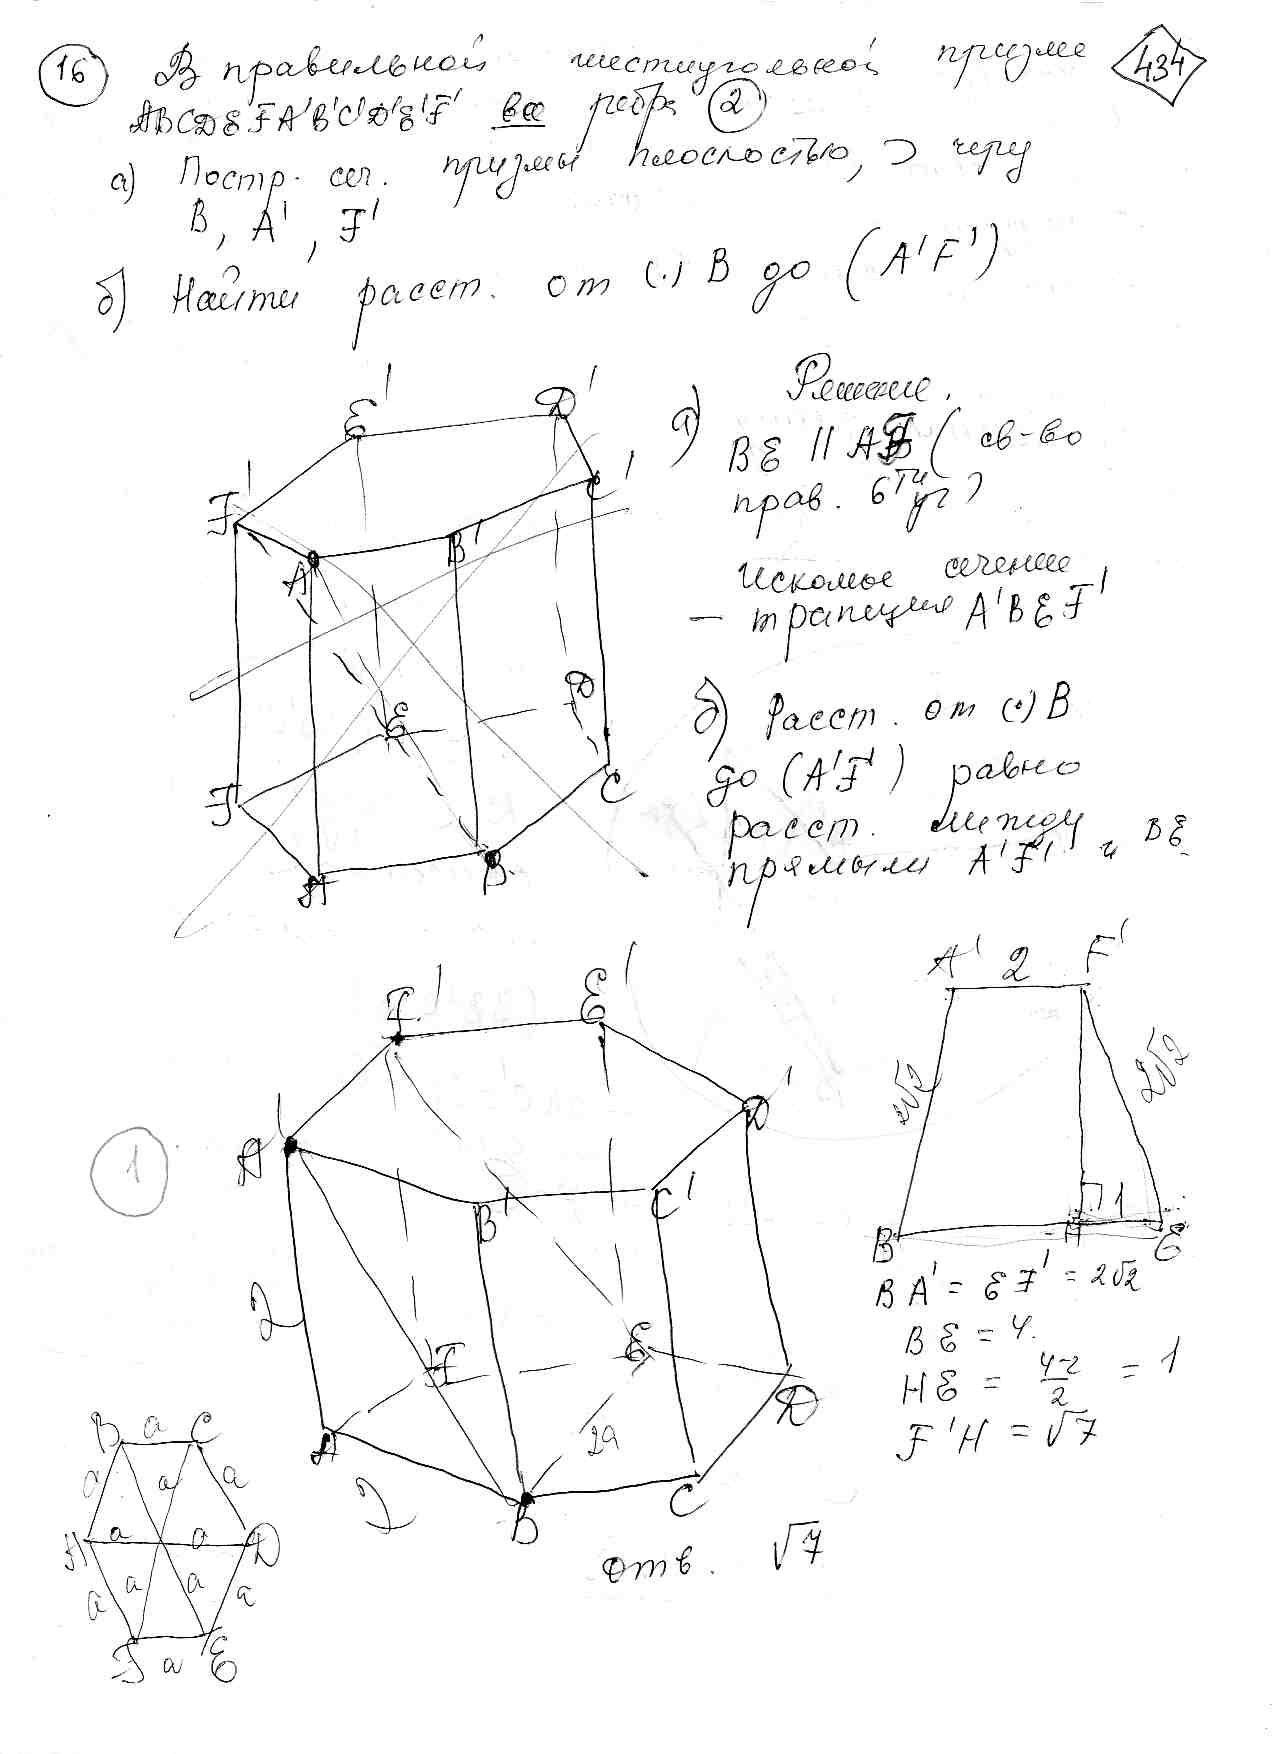 16 В правильной шестиугольной призме 434
ABCDEFA'B'C'D'E'F' все ребра 2
а) Постр. сеч. призмы плоскостью, ⊃ через
B, A', F'
б) Найти расст. от (·) B до (A'F')
Решение.
а) BE || AF (св-во
прав. 6ти уг)
Искомое сечение
– трапеция A'BEF'
б) Расст. от (·) B
до (A'F') равно
расст. между
прямыми A'F' и BE
E' D'
F' C'
A' B'
E D
F C
A B
A' 2 F'
2√2 2√2
1
B H E
BA' = EF' = 2√2
BE = 4.
HE = (4-2)/2 = 1
F'H = √7
1
F' E'
A' D'
B' C'
2
F E
A D
2a
2 B C
B a C
a a a
A a a D
a a a a
F a E
отв. √7